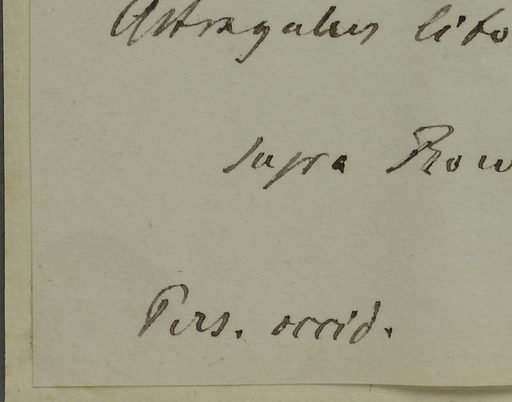 Astragalus lito
supra Row
Pers. occid.